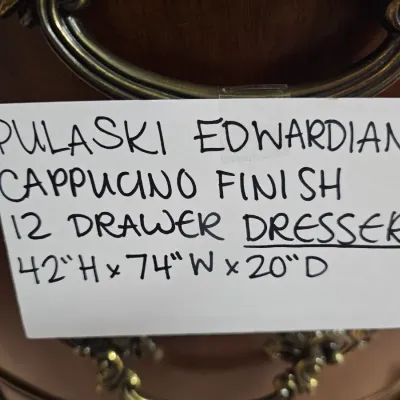 PULASKI EDWARDIAN
CAPPUCINO FINISH
12 DRAWER DRESSER
42"H x 74"W x 20"D